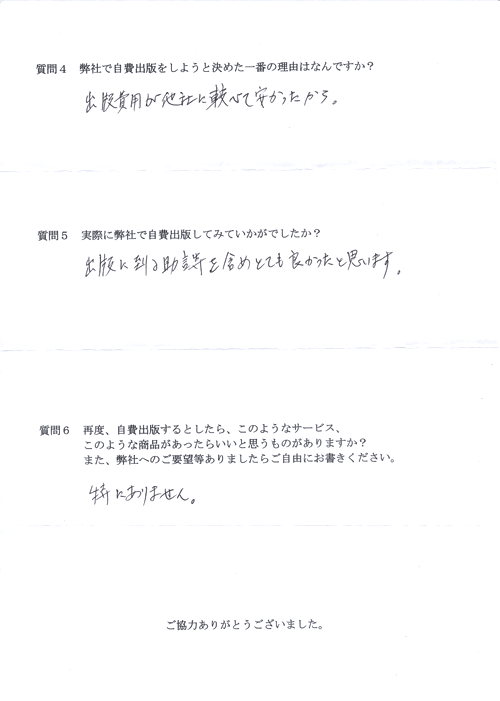 質問４　弊社で自費出版をしようと決めた一番の理由はなんですか？
出版費用が他社に較べて安かったから。
質問５　実際に弊社で自費出版してみていかがでしたか？
出版に到る助言等を含めとても良かったと思います。
質問６　再度、自費出版するとしたら、このようなサービス、
このような商品があったらいいと思うものがありますか？
また、弊社へのご要望等ありましたらご自由にお書きください。
特にありません。
ご協力ありがとうございました。